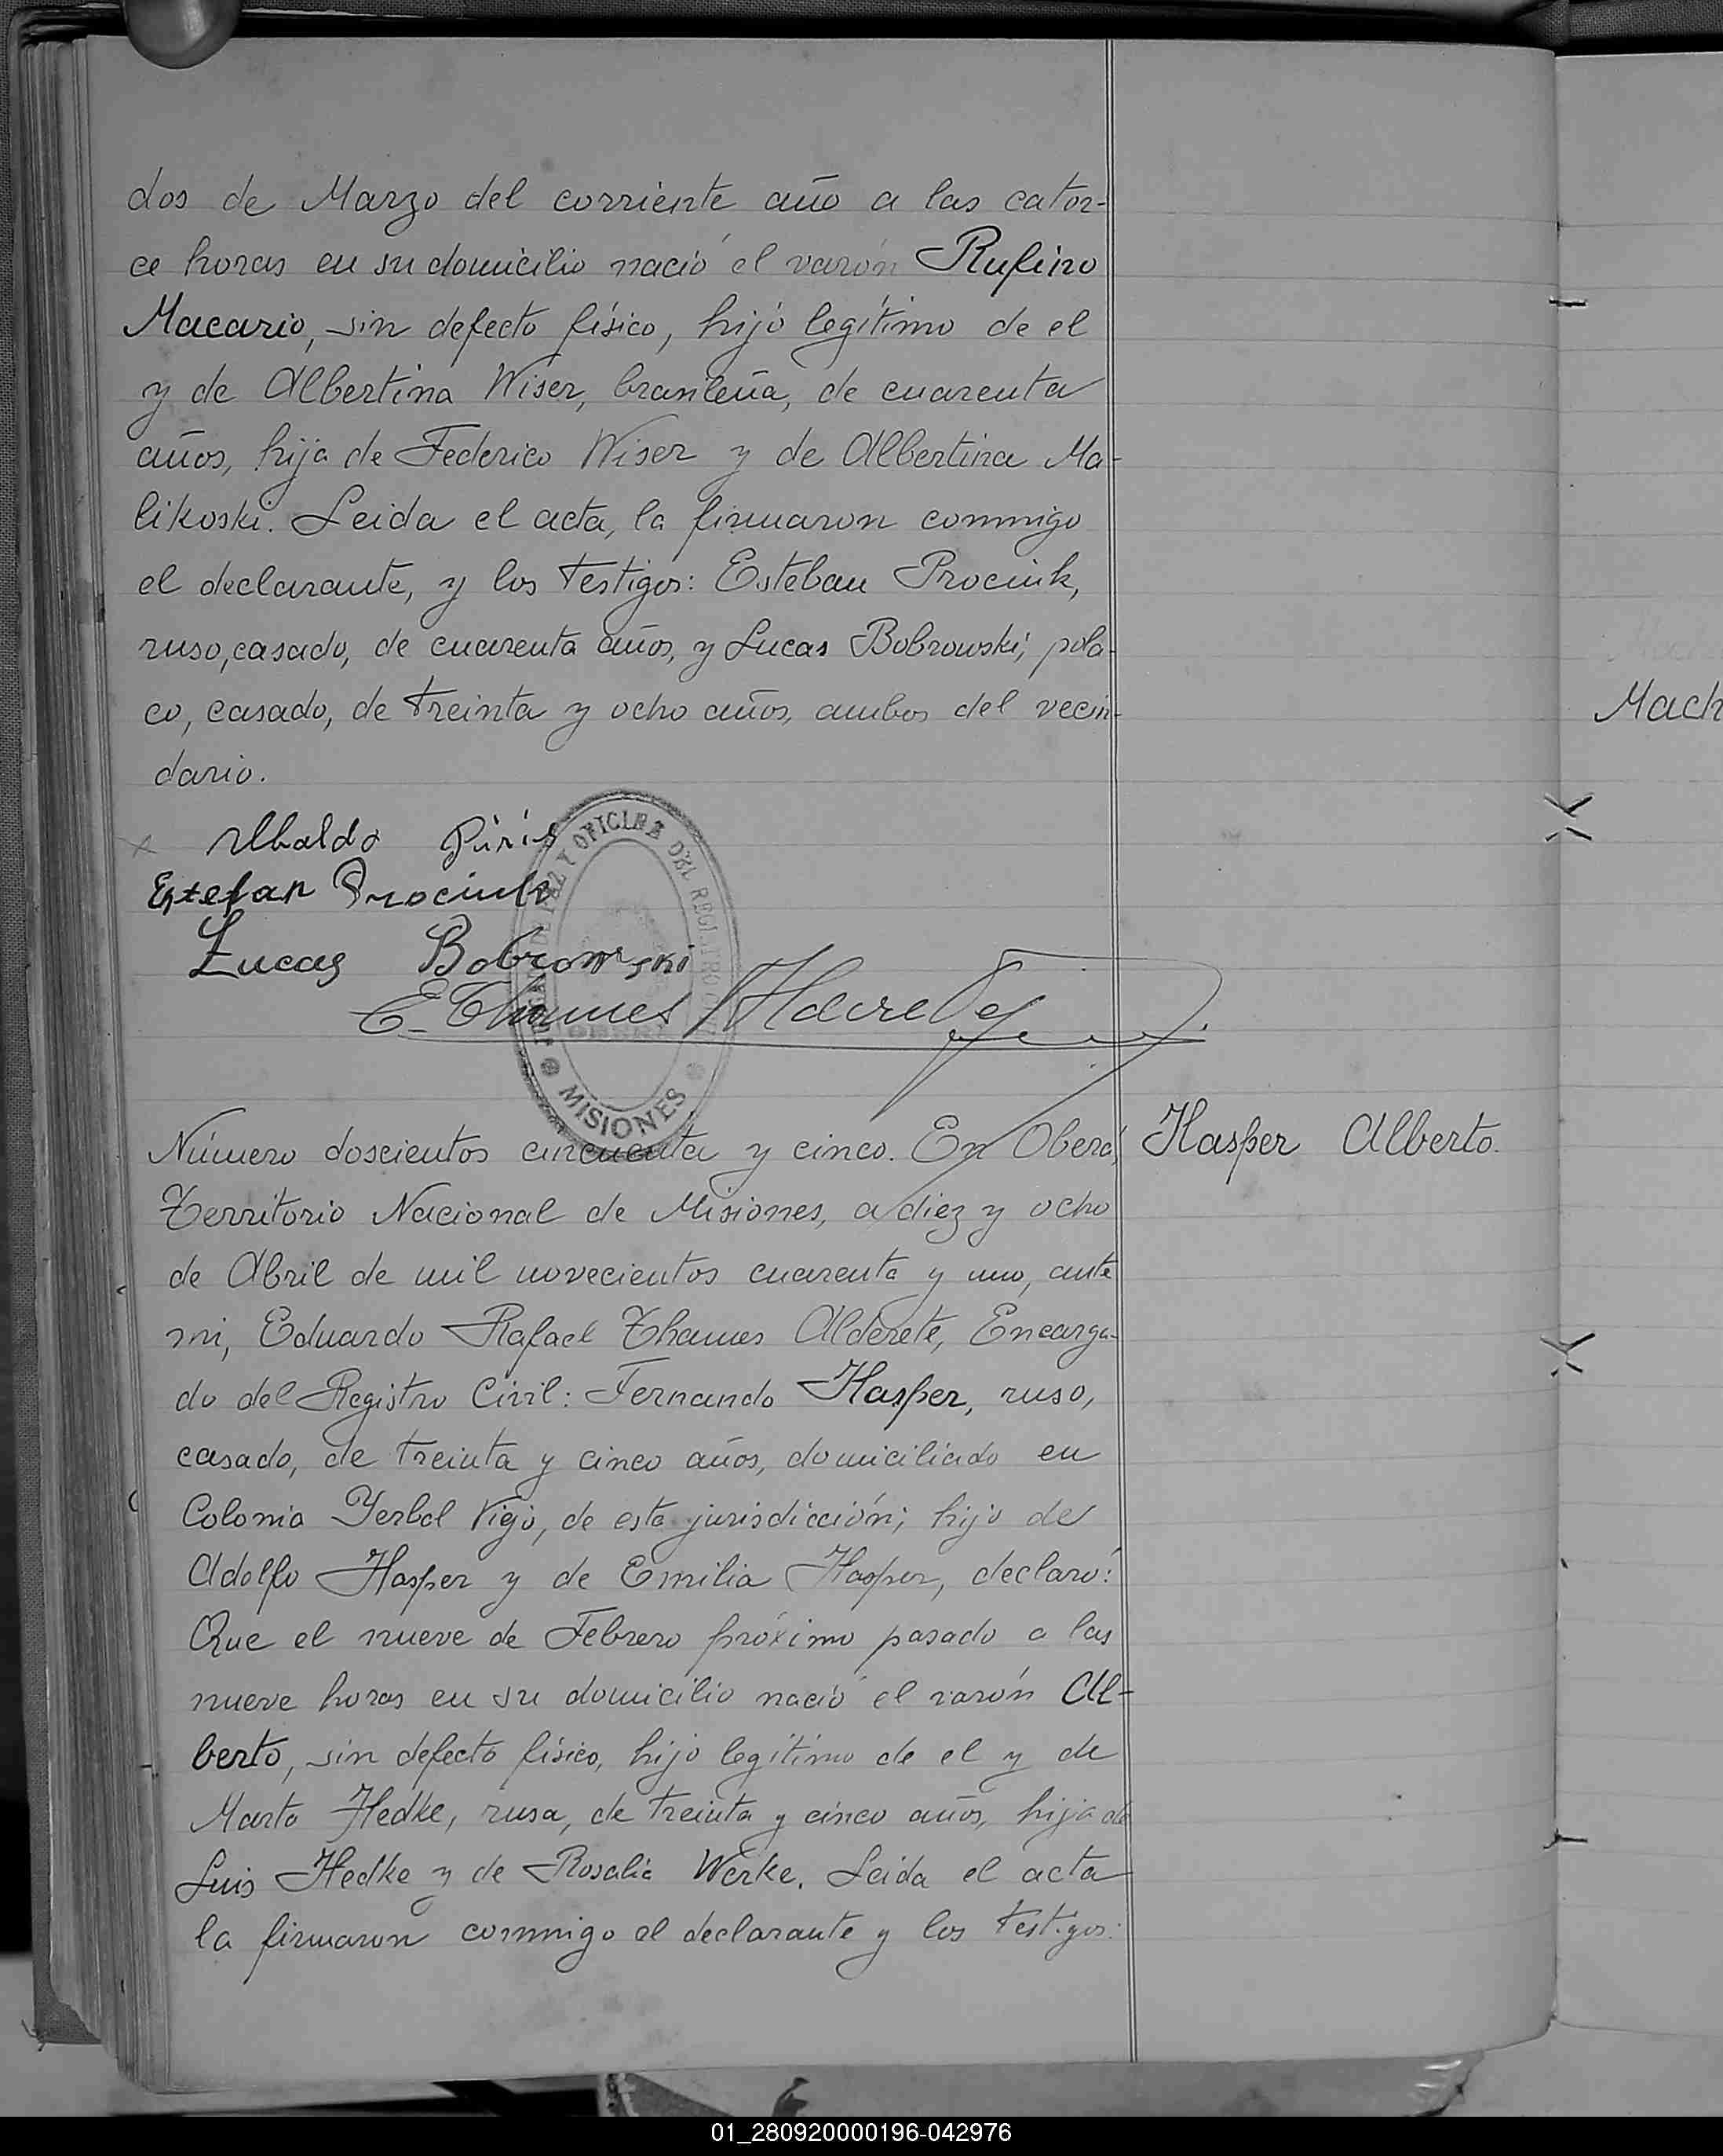 dos de Marzo del corriente año a las cator-
ce horas en su domicilio nació el varón Rufino
Macario, sin defecto físico, hijo legítimo de el
y de Albertina Wiser, brasileña, de cuarenta
años, hija de Federico Wiser y de Albertina Ma-
likoski. Leida el acta, la firmaron conmigo
el declarante, y los testigos: Esteban Prociuk,
ruso, casado, de cuarenta años, y Lucas Bobrowski, pola-
co, casado, de treinta y ocho años, ambos del vecin-
dario.
Ubaldo Piris
Estefan Prociuk
Lucas Bobrowski
E. Thames Alderete
Y OFICINA DEL REGISTRO
MISIONES
Número doscientos cincuenta y cinco. En Oberá,
Hasper Alberto.
Territorio Nacional de Misiones, a diez y ocho
de Abril de mil novecientos cuarenta y uno, ante
mi, Eduardo Rafael Thames Alderete, Encarga-
do del Registro Civil: Fernando Hasper, ruso,
casado, de treinta y cinco años, domiciliado en
Colonia Yerbal Viejo, de esta jurisdicción; hijo de
Adolfo Hasper y de Emilia Hasper, declaró:
Que el nueve de Febrero próximo pasado a las
nueve horas en su domicilio nació el varón Al-
berto, sin defecto físico, hijo legítimo de el y de
Marta Hedke, rusa, de treinta y cinco años, hija de
Luis Hedke y de Rosalia Werke. Leida el acta
la firmaron conmigo el declarante y los testigos:
Mach
01_280920000196-042976